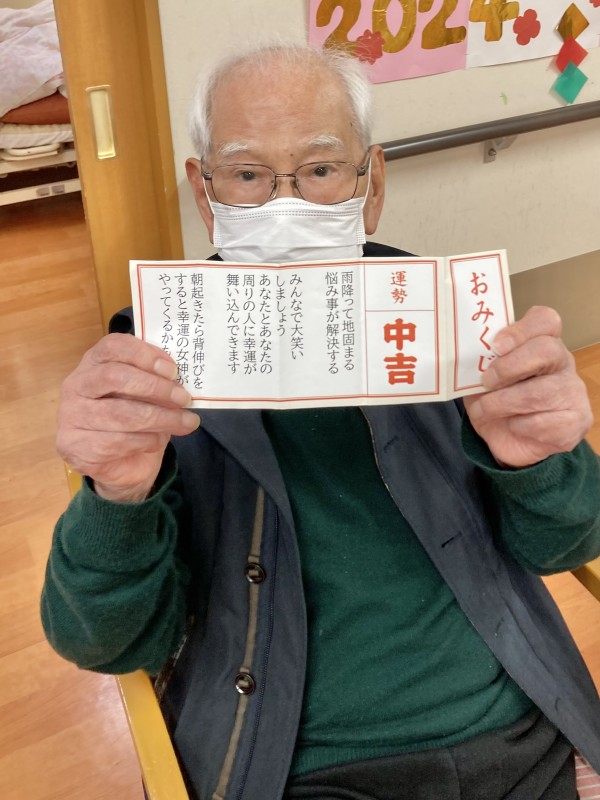 2024
おみくじ
運勢
中吉
雨降って地固まる
悩み事が解決する
みんなで大笑い
しましょう
あなたとあなたの
周りの人に幸運が
舞い込んできます
朝起きたら背伸びを
すると幸運の女神が
やってくるか